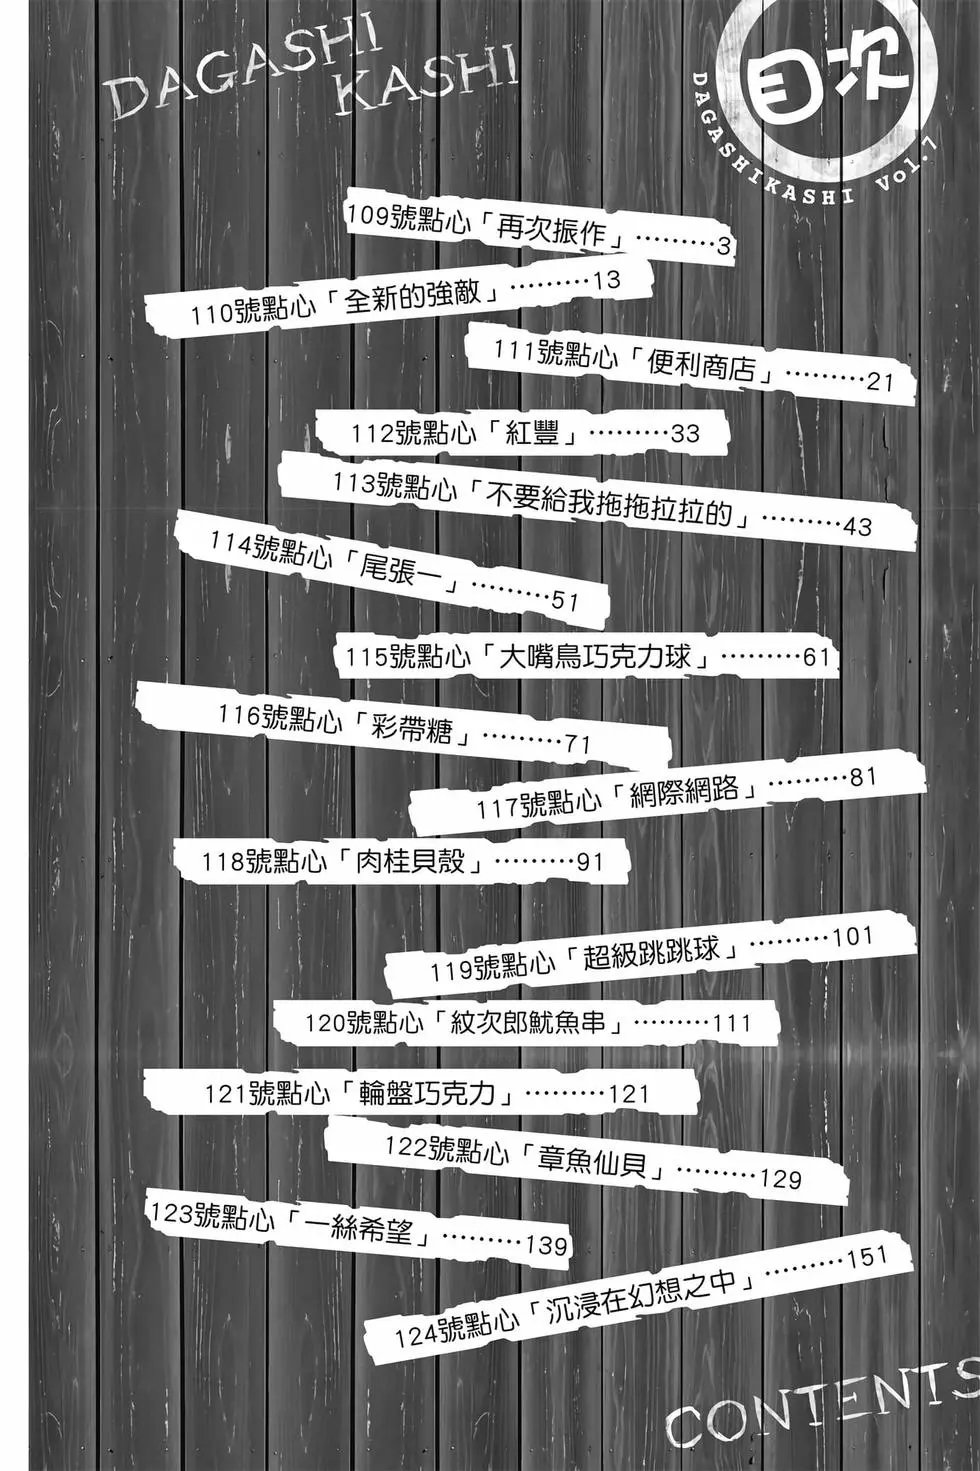 DAGASHI
KASHI
目次
DAGASHIKASHI Vol.7
109號點心「再次振作」………3
110號點心「全新的強敵」………13
111號點心「便利商店」………21
112號點心「紅豐」………33
113號點心「不要給我拖拖拉拉的」………43
114號點心「尾張一」………51
115號點心「大嘴鳥巧克力球」………61
116號點心「彩帶糖」………71
117號點心「網際網路」………81
118號點心「肉桂貝殼」………91
119號點心「超級跳跳球」………101
120號點心「紋次郎魷魚串」………111
121號點心「輪盤巧克力」………121
122號點心「章魚仙貝」………129
123號點心「一絲希望」………139
124號點心「沉浸在幻想之中」………151
CONTENTS